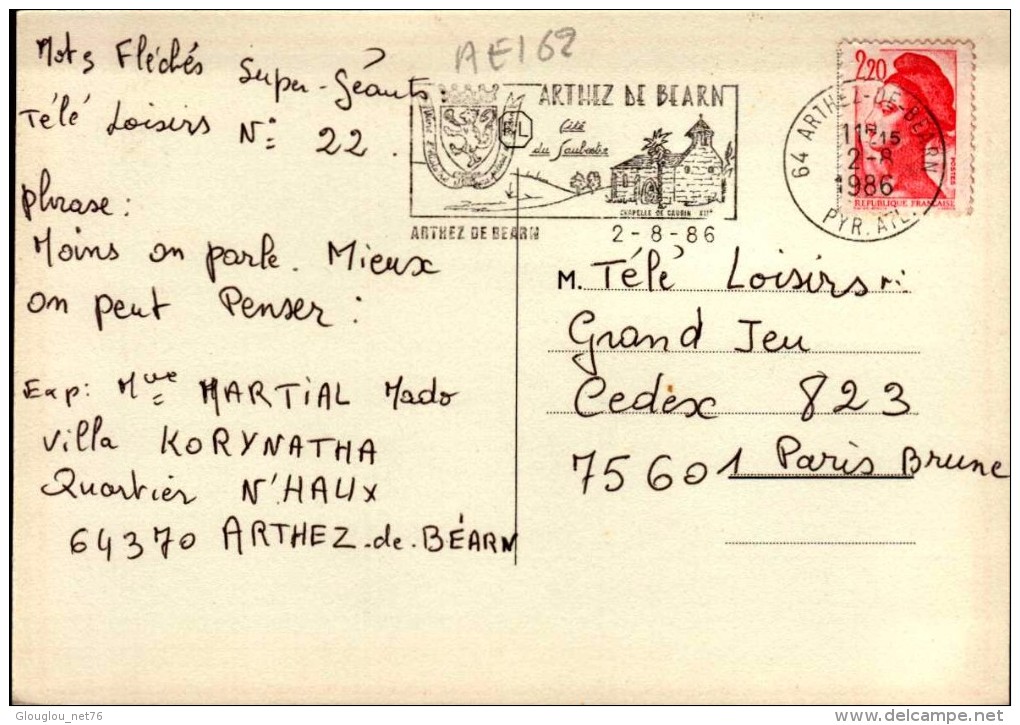 AE162
Mots Fléchés Super-Géants:
Télé Loisirs N: 22.
phrase:
Moins on parle. Mieux
on peut Penser:
Exp: Mve MARTIAL Mado
Villa KORYNATHA
Quartier N'HAUX
64370 ARTHEZ-de-BÉARN
ARTHEZ DE BEARN
Cité
du Saubestre
CHAPELLE DE CAUBIN XIIe
ARTHEZ DE BEARN
2-8-86
64 ARTHEZ-DE-BEARN
11H15
2-8
1986
PYR. ATL.
2,20
POSTES
REPUBLIQUE FRANÇAISE
M. Télé Loisirs
Grand Jeu
Cedex 823
75601 Paris Brune
Glouglou_net76